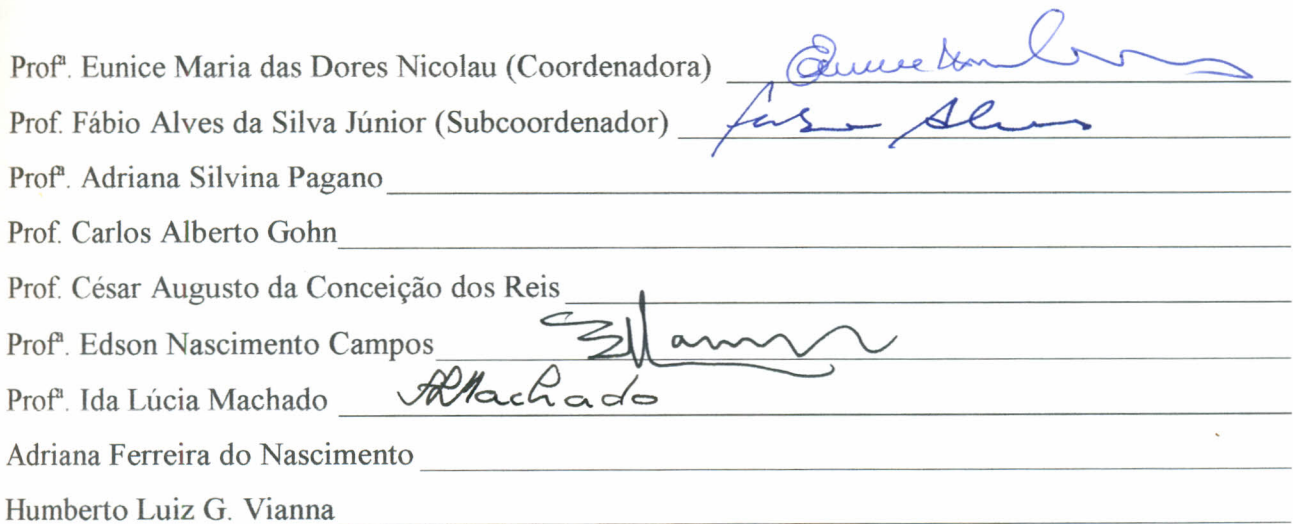 Profª. Eunice Maria das Dores Nicolau (Coordenadora)
Prof. Fábio Alves da Silva Júnior (Subcoordenador) Alves
Profª. Adriana Silvina Pagano
Prof. Carlos Alberto Gohn
Prof. César Augusto da Conceição dos Reis
Profª. Edson Nascimento Campos
Profª. Ida Lúcia Machado Machado
Adriana Ferreira do Nascimento
Humberto Luiz G. Vianna